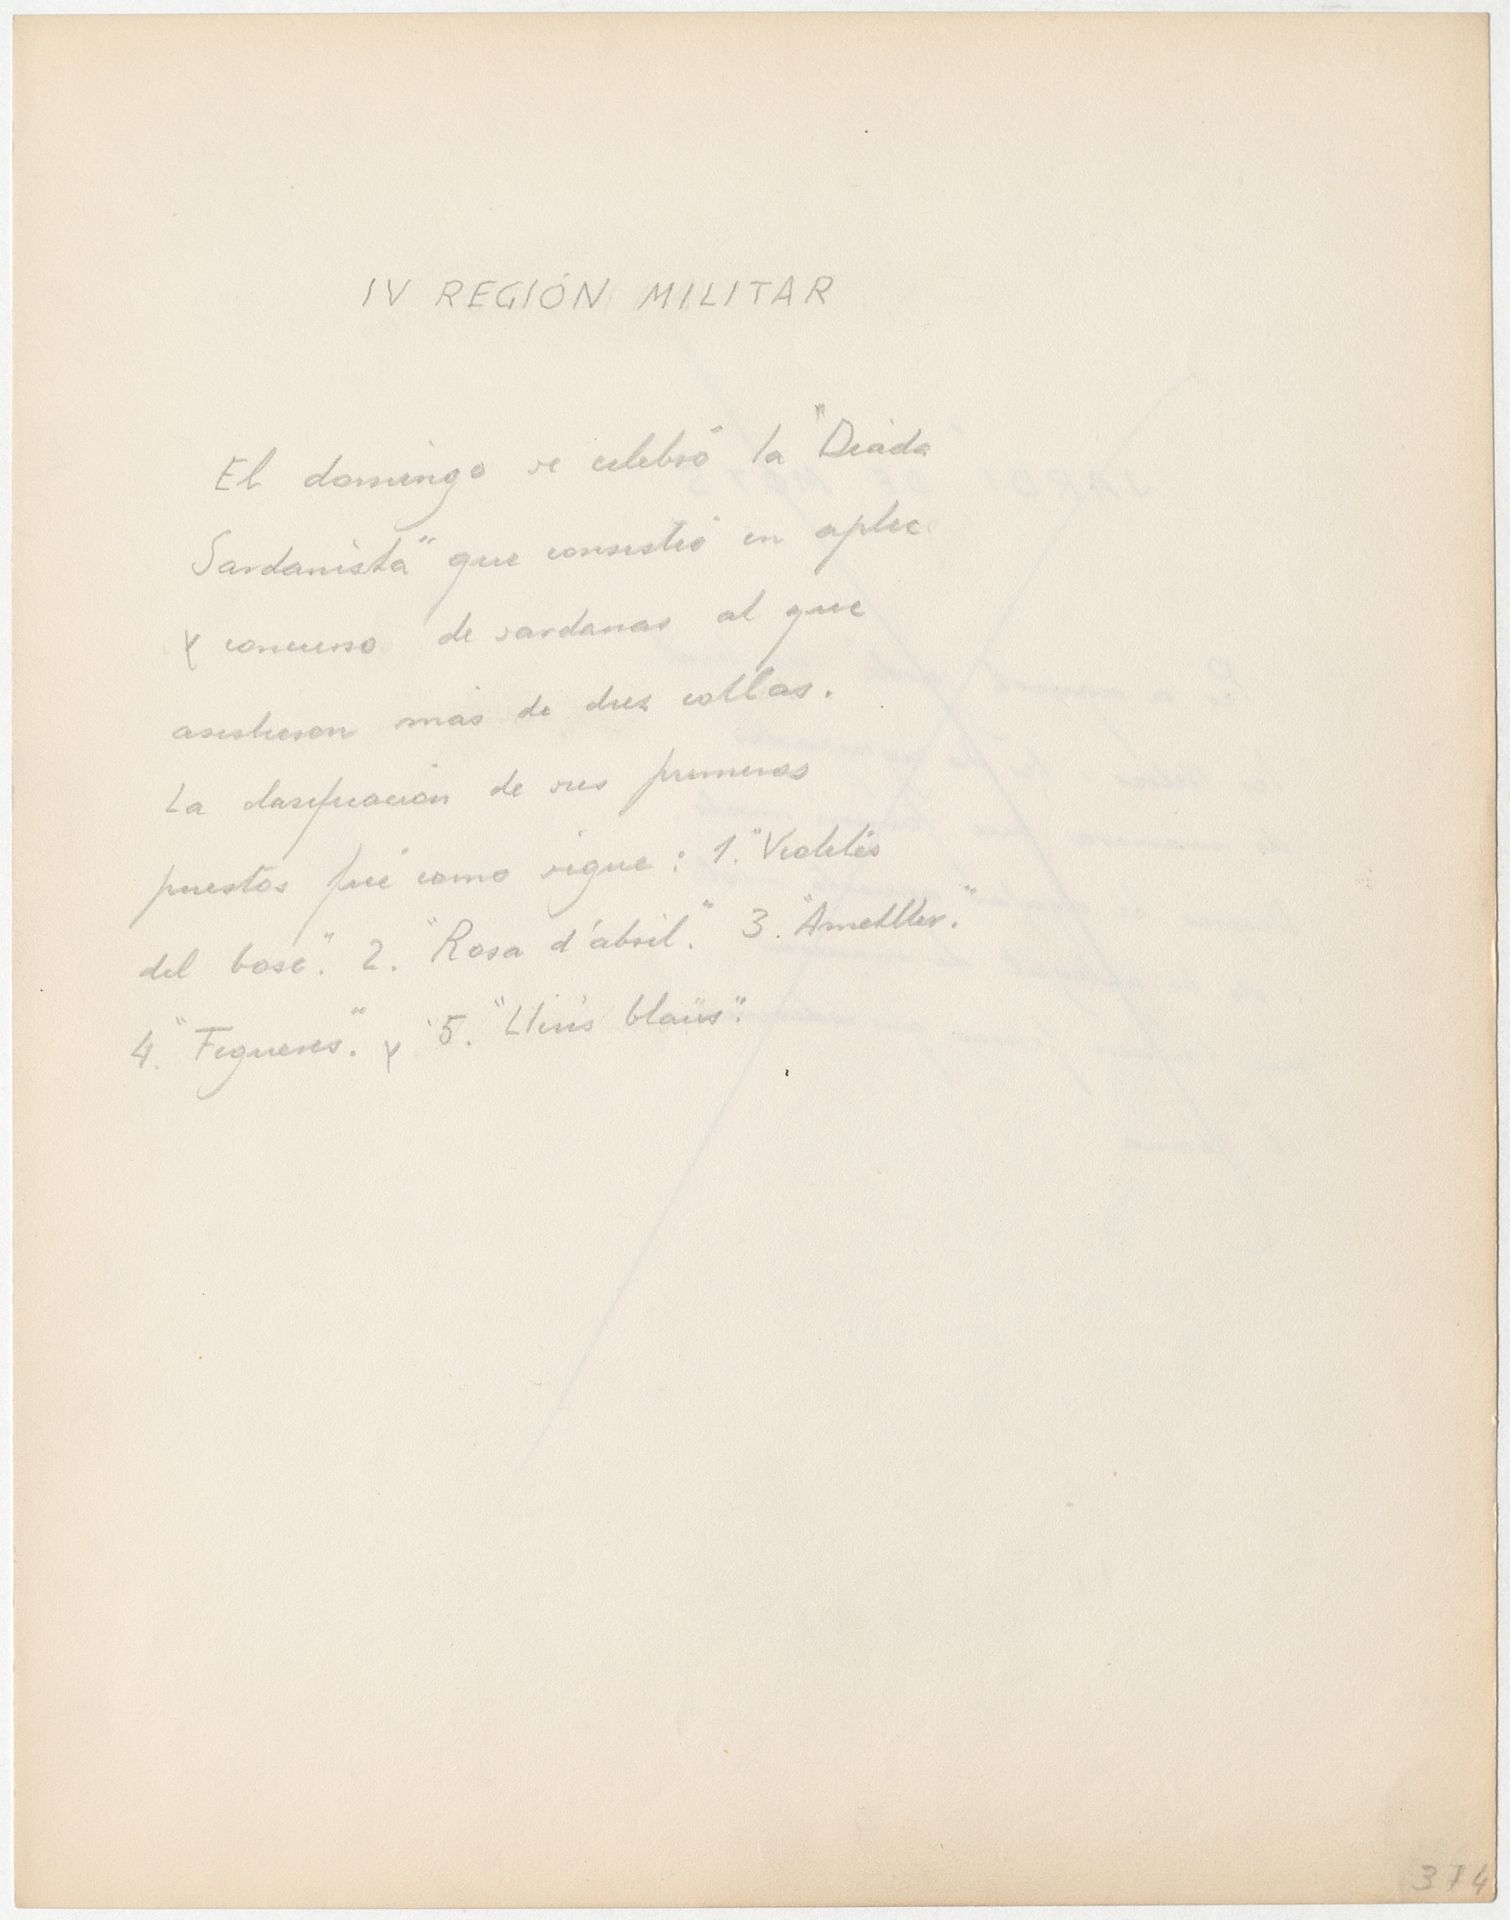 IV REGIÓN MILITAR
El domingo se celebró la "Diada
Sardanista" que consistió en aplec
y concurso de sardanas al que
asistieron más de diez collas.
La clasificación de sus primeros
puestos fué como sigue: 1. "Violetes
del bosc". 2. "Rosa d'abril." 3. "Ametller."
4. "Figueres." y 5. "Lliris blaüs".
374